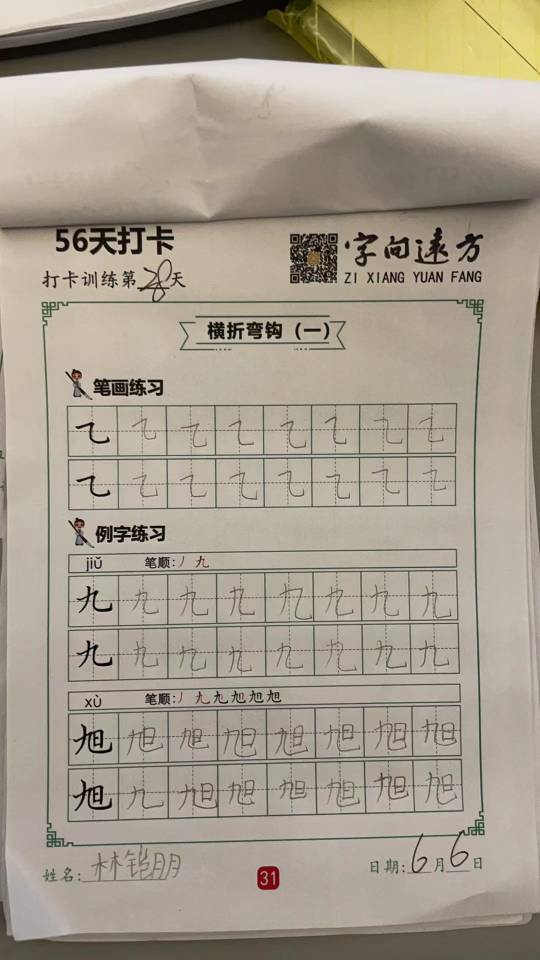 56天打卡
字向遠方
打卡训练第28天
ZI XIANG YUAN FANG
横折弯钩（一）
笔画练习
㇈ ㇈ ㇈ ㇈ ㇈ ㇈ ㇈ ㇈
㇈ ㇈ ㇈ ㇈ ㇈ ㇈ ㇈ ㇈
例字练习
jiǔ 笔顺:丿 九
九 九 九 九 九 九 九 九
九 九 九 九 九 九 九 九
xù 笔顺:丿 九 九 旭 旭 旭
旭 旭 旭 旭 旭 旭 旭 旭
旭 九 旭 旭 旭 旭 旭 旭
姓名:林铠朋
31
日期:6月6日